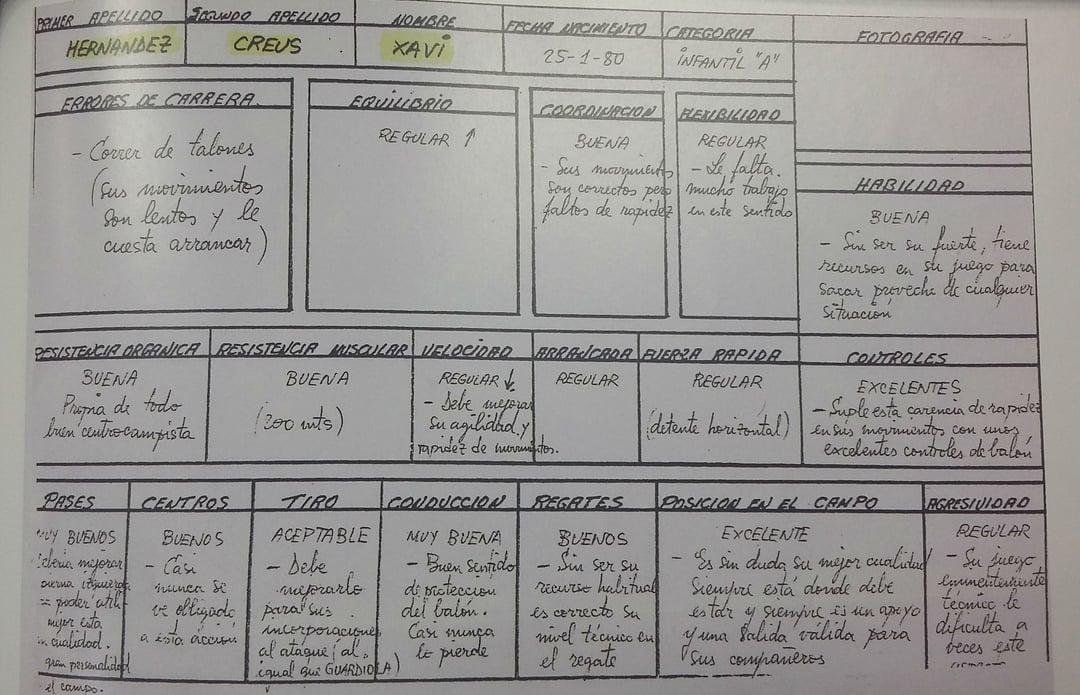 PRIMER APELLIDO
HERNANDEZ
SEGUNDO APELLIDO
CREUS
NOMBRE
XAVI
FECHA NACIMIENTO
25-1-80
CATEGORIA
INFANTIL "A"
FOTOGRAFIA
ERRORES DE CARRERA.
- Correr de talones
(sus movimientos
son lentos y le
cuesta arrancar)
EQUILIBRIO
REGULAR ↑
COORDINACION
BUENA
- Sus movimientos
son correctos pero
faltos de rapidez
FLEXIBILIDAD
REGULAR
- Le falta
mucho trabajo
en este sentido
HABILIDAD
BUENA
- Sin ser su fuerte, tiene
recursos en su juego para
sacar provecho de cualquier
situación
RESISTENCIA ORGANICA
BUENA
Propia de todo
buen centrocampista
RESISTENCIA MUSCULAR
BUENA
(300 mts)
VELOCIDAD
REGULAR ↓
- Debe mejorar
su agilidad y
rapidez de movimientos.
ARRANCADA
REGULAR
FUERZA RAPIDA
REGULAR
(detente horizontal)
CONTROLES
EXCELENTES
- Suple esta carencia de rapidez
en sus movimientos con unos
excelentes controles de balón
PASES
MUY BUENOS
mejorar
poder
mejor esta
cualidad.
gran personalidad
el campo.
CENTROS
BUENOS
- Casi
nunca se
ve obligado
a esta acción
TIRO
ACEPTABLE
- Debe
mejorarlo
para sus
incorporaciones
al ataque (al
igual que GUARDIOLA)
CONDUCCION
MUY BUENA
- Buen sentido
de proteccion
del balón.
Casi nunca
lo pierde
REGATES
BUENOS
- Sin ser su
recurso habitual
es correcto su
nivel técnico en
el regate
POSICION EN EL CAMPO
EXCELENTE
- Es sin duda su mejor cualidad
Siempre está donde debe
estar y siempre es un apoyo
y una salida válida para
sus compañeros
AGRESIVIDAD
REGULAR
- Su juego
eminentemente
técnico le
dificulta a
veces este